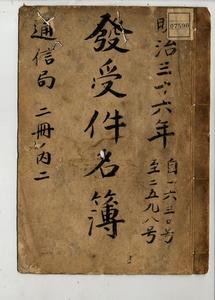 明治三十六年
自一六三〇号
至二五九八号
發受件名簿
通信局 二冊ノ内二
07590